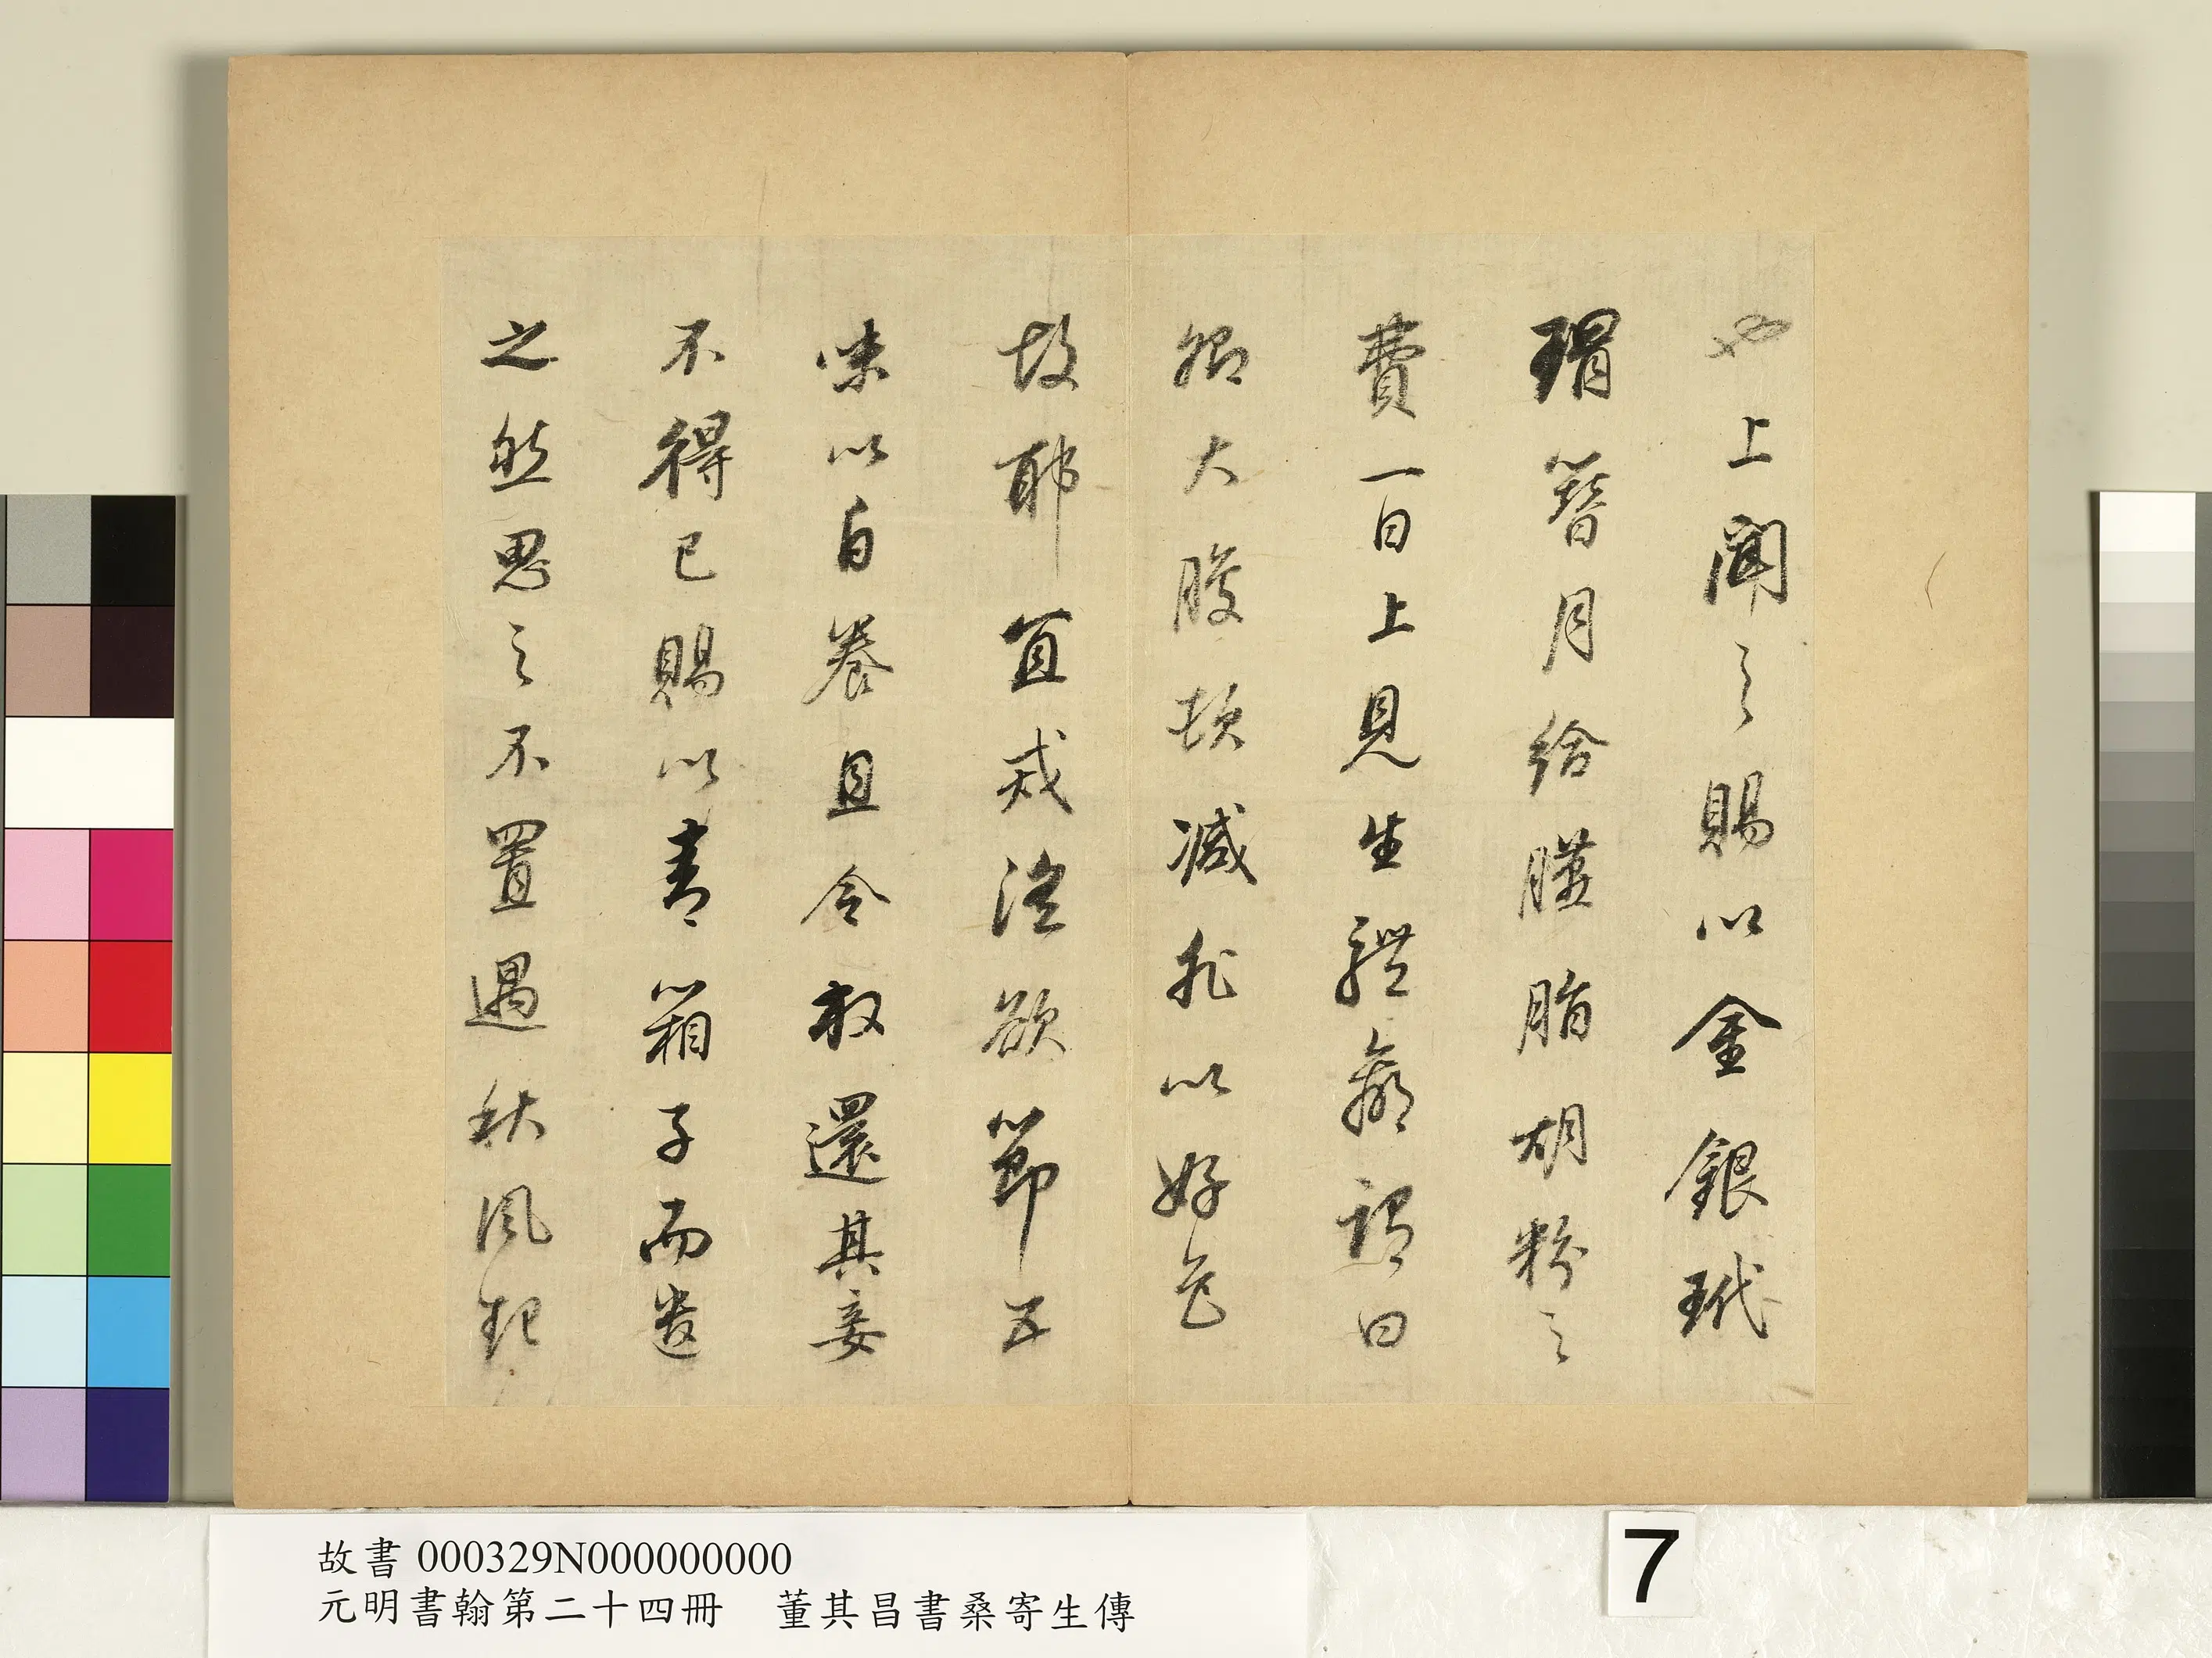 也上聞之賜以金銀玳
瑁簪月給臙脂胡粉之
費一日上見生體羸謂曰
卿大腹頓減非以好色
故耶宜戒淫欲節五
味以自養且令放還其妾
不得已賜以青箱子而遣
之然思之不置遇秋風起
故書 000329N000000000
元明書翰第二十四冊　董其昌書桑寄生傳
7